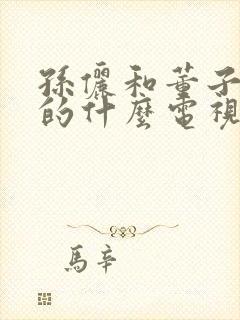 孫儷和董子
的什麼電視
馬辛